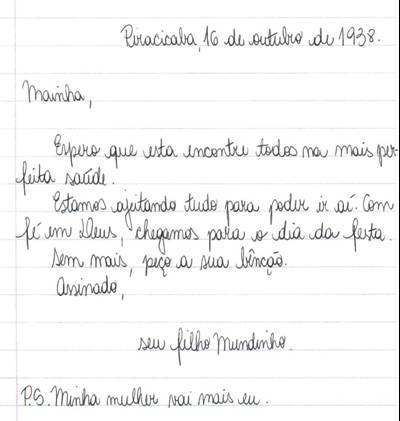 Piracicaba, 16 de outubro de 1938.
Mainha,
Espero que esta encontre todos na mais per-
feita saúde.
Estamos ajeitando tudo para poder ir aí. Com
fé em Deus, chegamos para o dia da festa.
Sem mais, peço a sua bênção.
Assinado,
seu filho Mundinho.
P.S. Minha mulher vai mais eu.